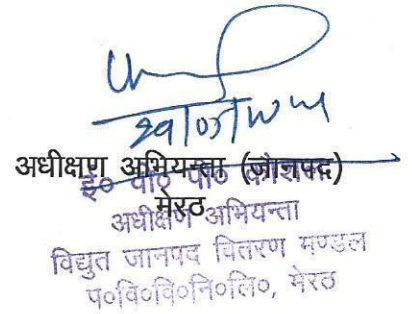 अधीक्षण अभियन्ता (जानपद)
मेरठ
ई० वी० पी० कौशल
अधीक्षण अभियन्ता
विद्युत जानपद वितरण मण्डल
प०वि०वि०नि०लि०, मेरठ